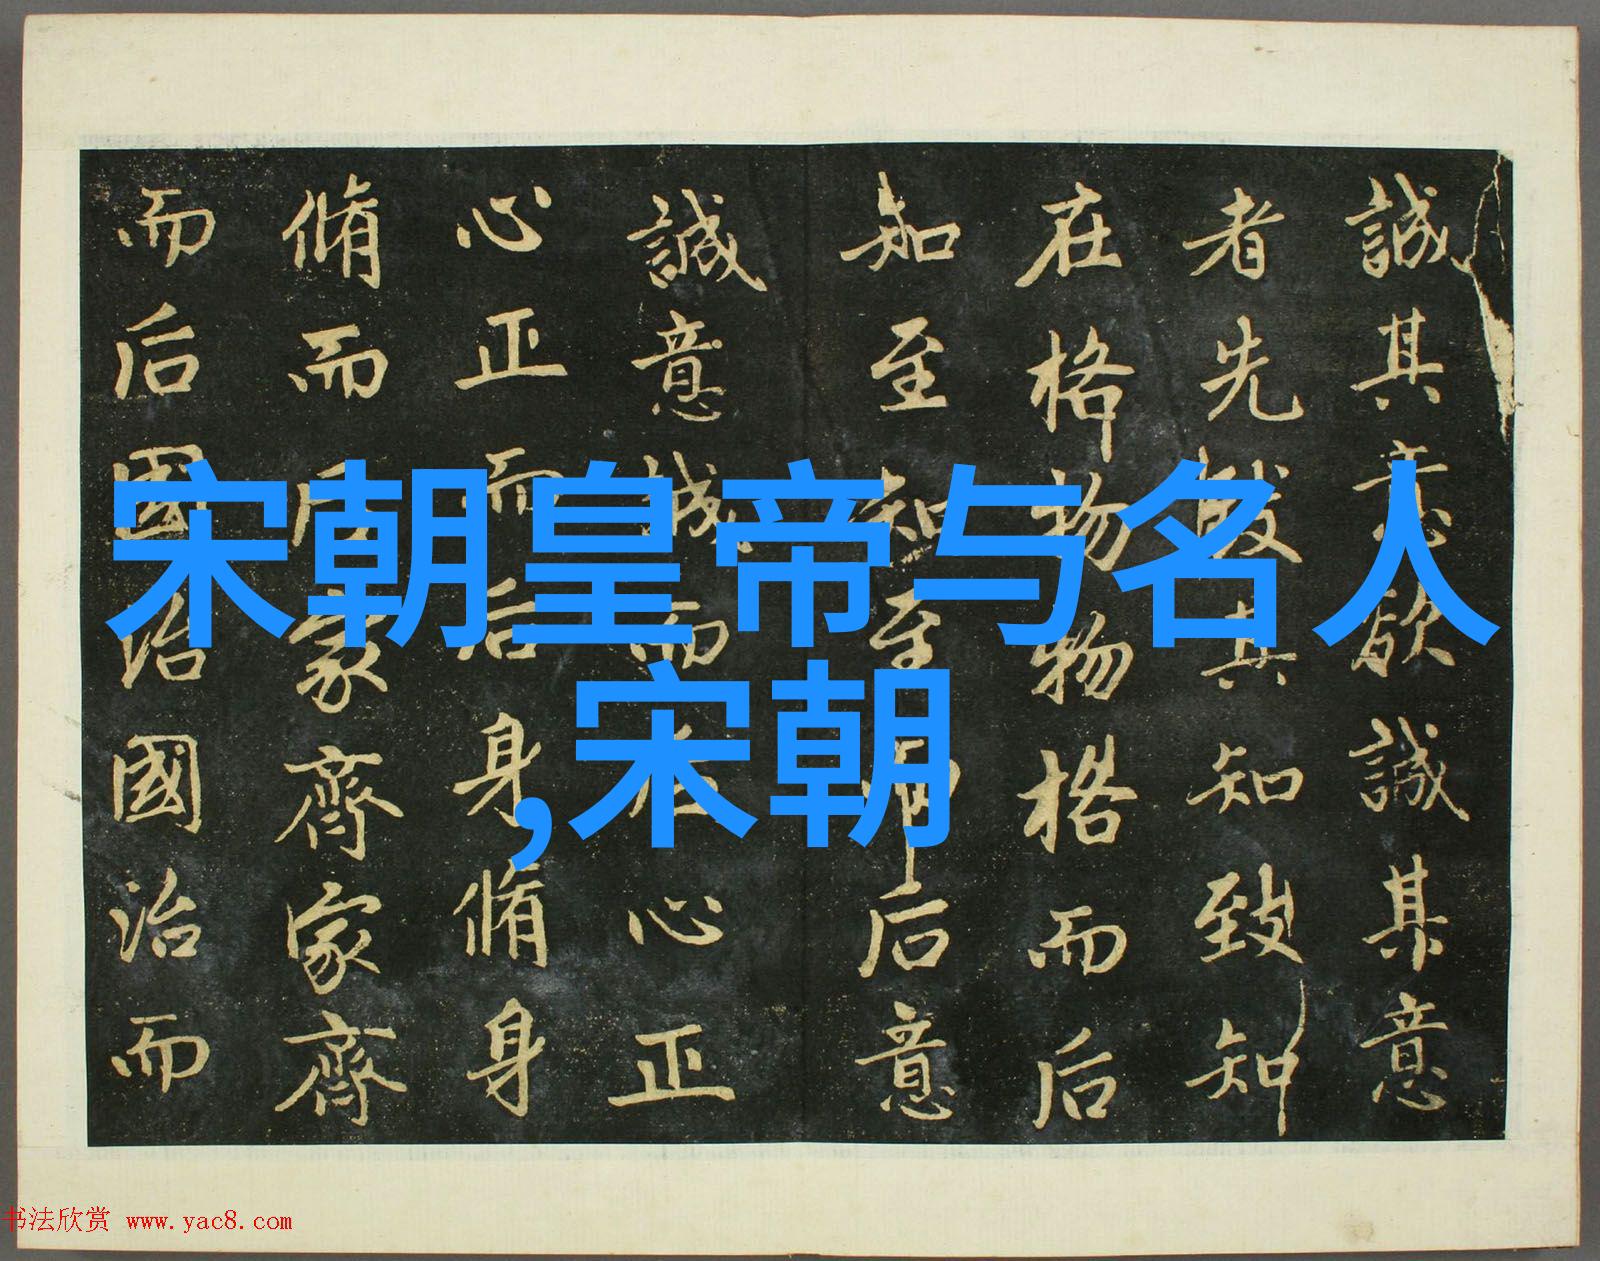 誠其意欲誠其意
者先致其知致知
在格物物格而后
知至知至而后意
誠意誠而后心正
心正而后身脩身
脩而后家齊家齊
而后國治國治而
宋朝皇帝与名人
,宋朝
书法欣赏 www.yac8.com